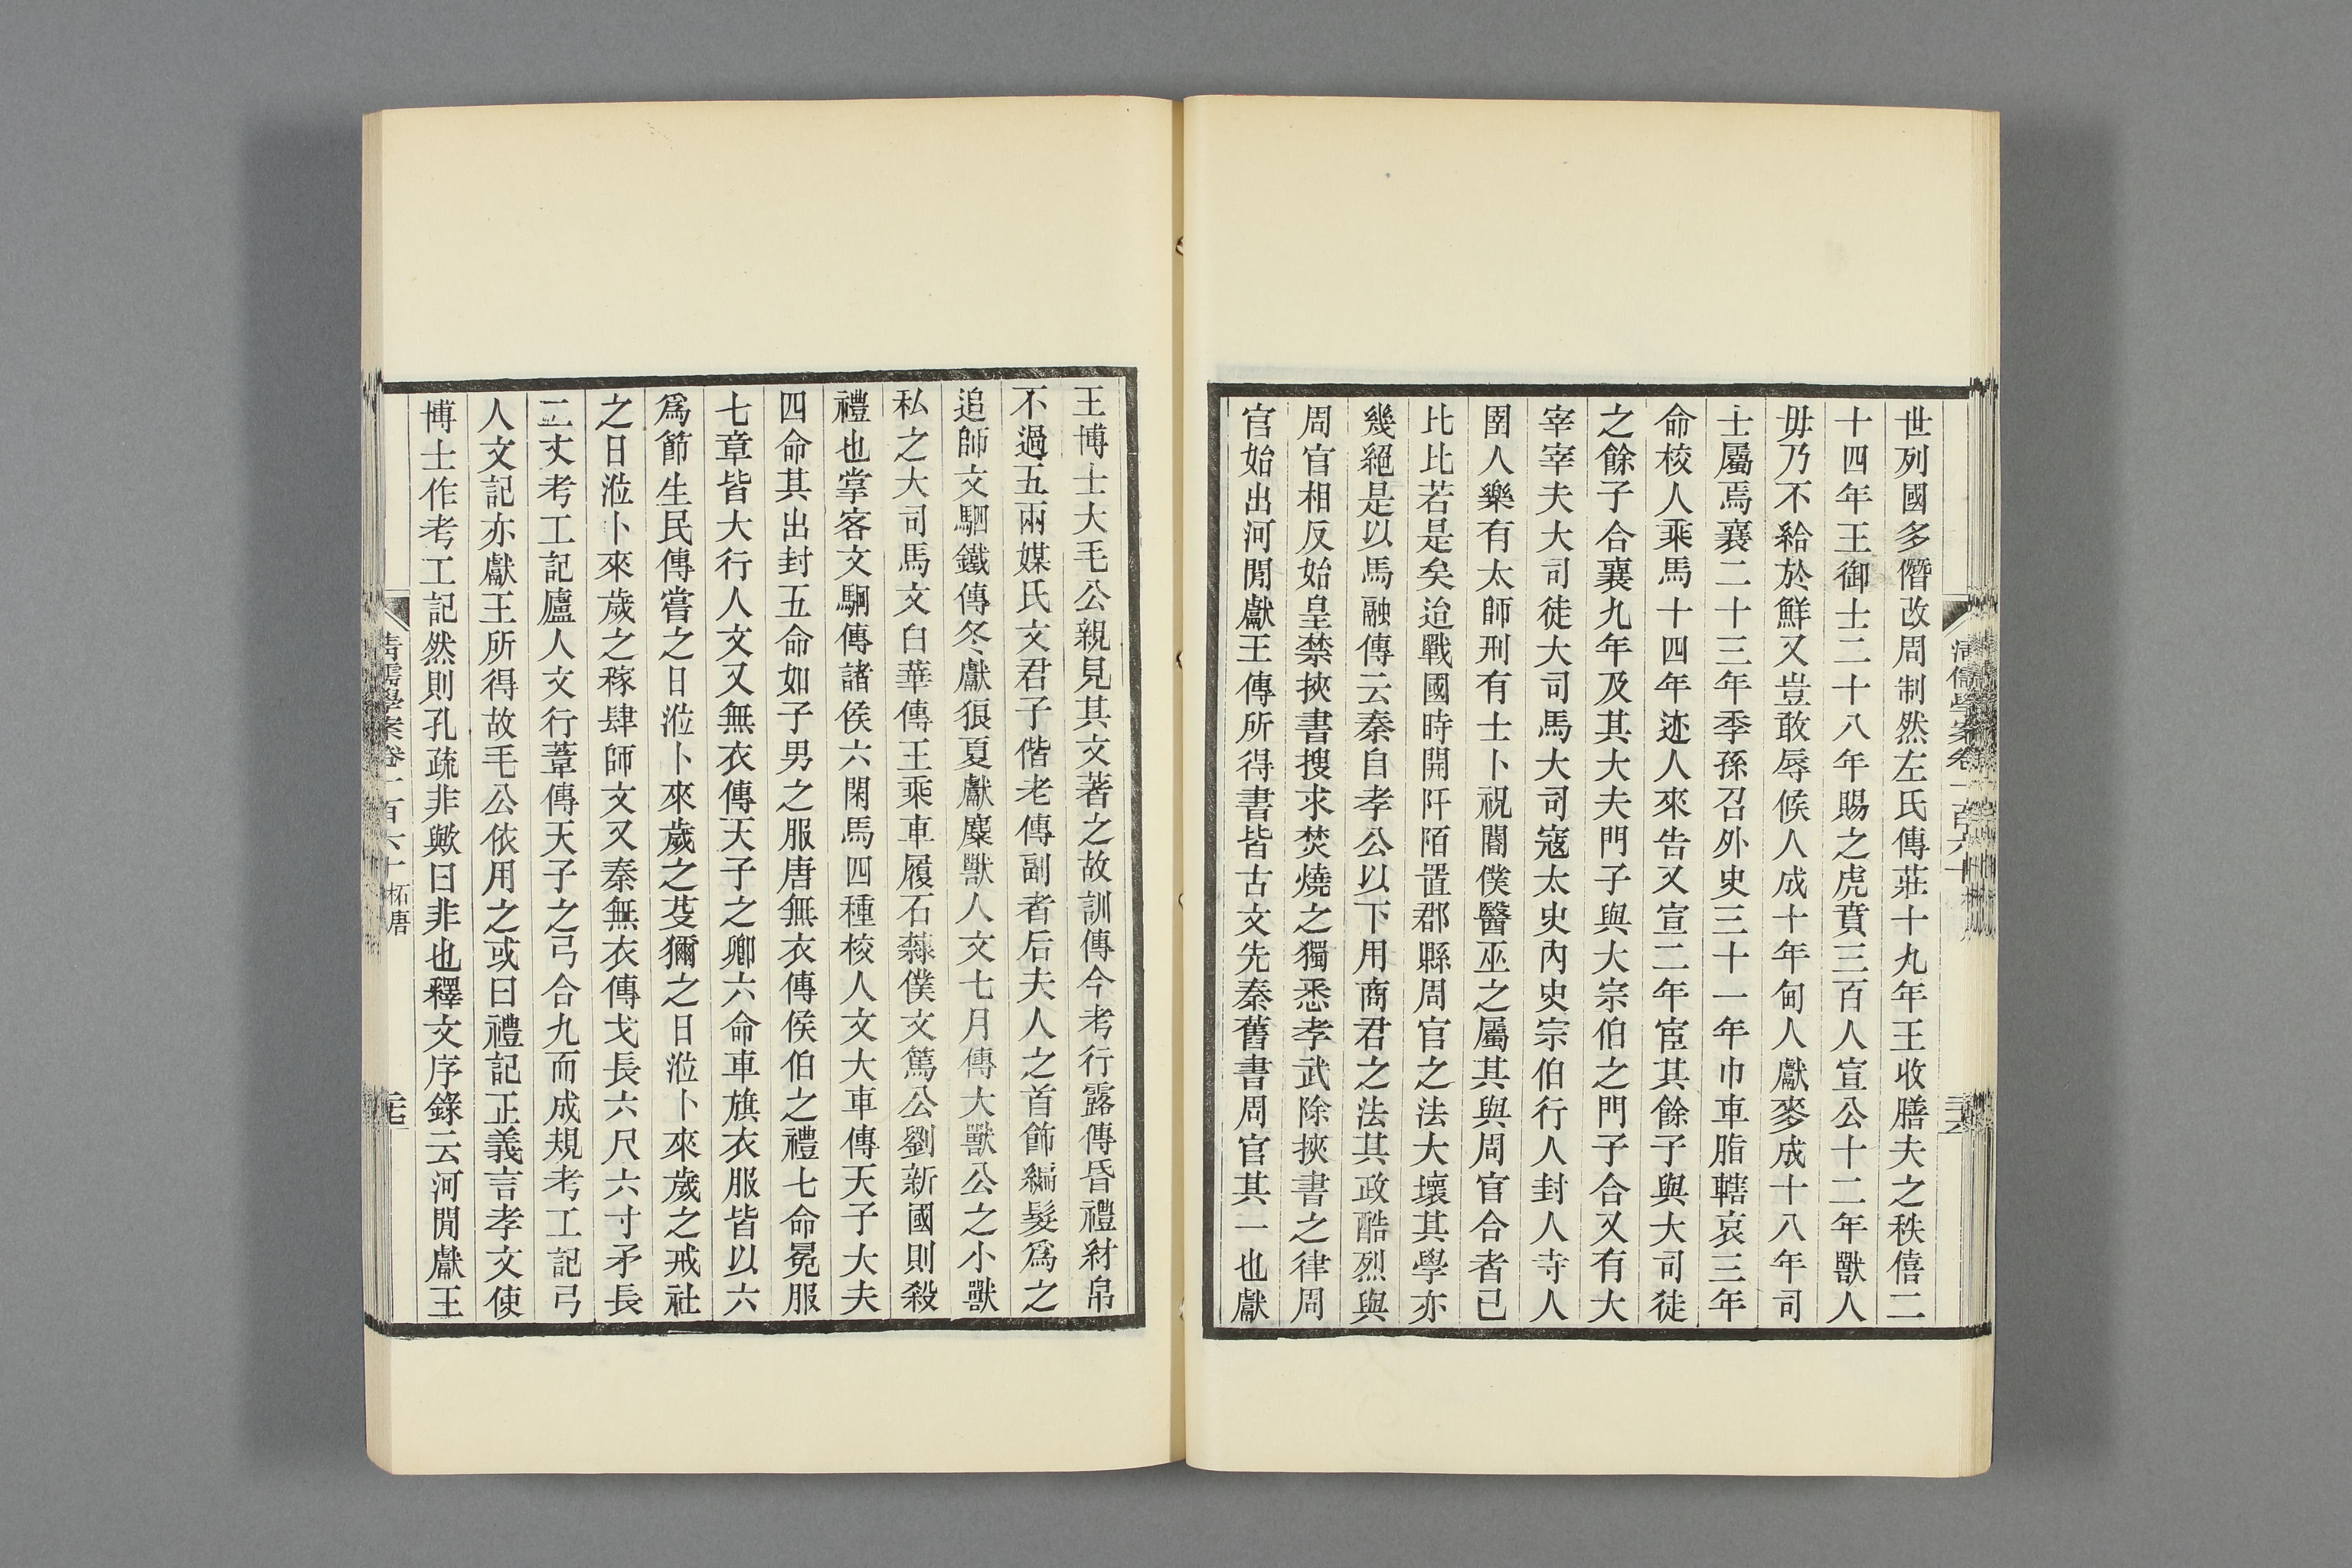 世列國多僭改周制然左氏傳莊十九年王收膳夫之秩僖二
十四年王御士二十八年賜之虎賁三百人宣公十二年獸人
毋乃不給於鮮又豈敢辱候人成十年甸人獻麥成十八年司
士屬焉襄二十三年季孫召外史三十一年巾車脂轄哀三年
命校人乘馬十四年迹人來告又宣二年宦其餘子與大司徒
之餘子合襄九年及其大夫門子與大宗伯之門子合又有大
宰宰夫大司徒大司馬大司寇太史內史宗伯行人封人寺人
圉人樂有太師刑有士卜祝閽僕醫巫之屬其與周官合者已
比比若是矣迨戰國時開阡陌置郡縣周官之法大壞其學亦
幾絕是以馬融傳云秦自孝公以下用商君之法其政酷烈與
周官相反始皇禁挾書搜求焚燒之獨悉孝武除挾書之律周
官始出河閒獻王傳所得書皆古文先秦舊書周官其一也獻
王博士大毛公親見其文著之故訓傳今考行露傳昏禮紂帛
不過五兩媒氏文君子偕老傳副者后夫人之首飾編髮爲之
追師文駟鐵傳冬獻狼夏獻麋獸人文七月傳大獸公之小獸
私之大司馬文白華傳王乘車履石隸僕文篤公劉新國則殺
禮也掌客文駉傳諸侯六閑馬四種校人文大車傳天子大夫
四命其出封五命如子男之服唐無衣傳侯伯之禮七命冕服
七章皆大行人文又無衣傳天子之卿六命車旗衣服皆以六
爲節生民傳嘗之日涖卜來歲之芟獮之日涖卜來歲之戒社
之日涖卜來歲之稼肆師文又秦無衣傳戈長六尺六寸矛長
二丈考工記廬人文行葦傳天子之弓合九而成規考工記弓
人文記亦獻王所得故毛公依用之或曰禮記正義言孝文使
博士作考工記然則孔疏非歟曰非也釋文序錄云河閒獻王
清儒學案卷一百六十 柘唐 二七